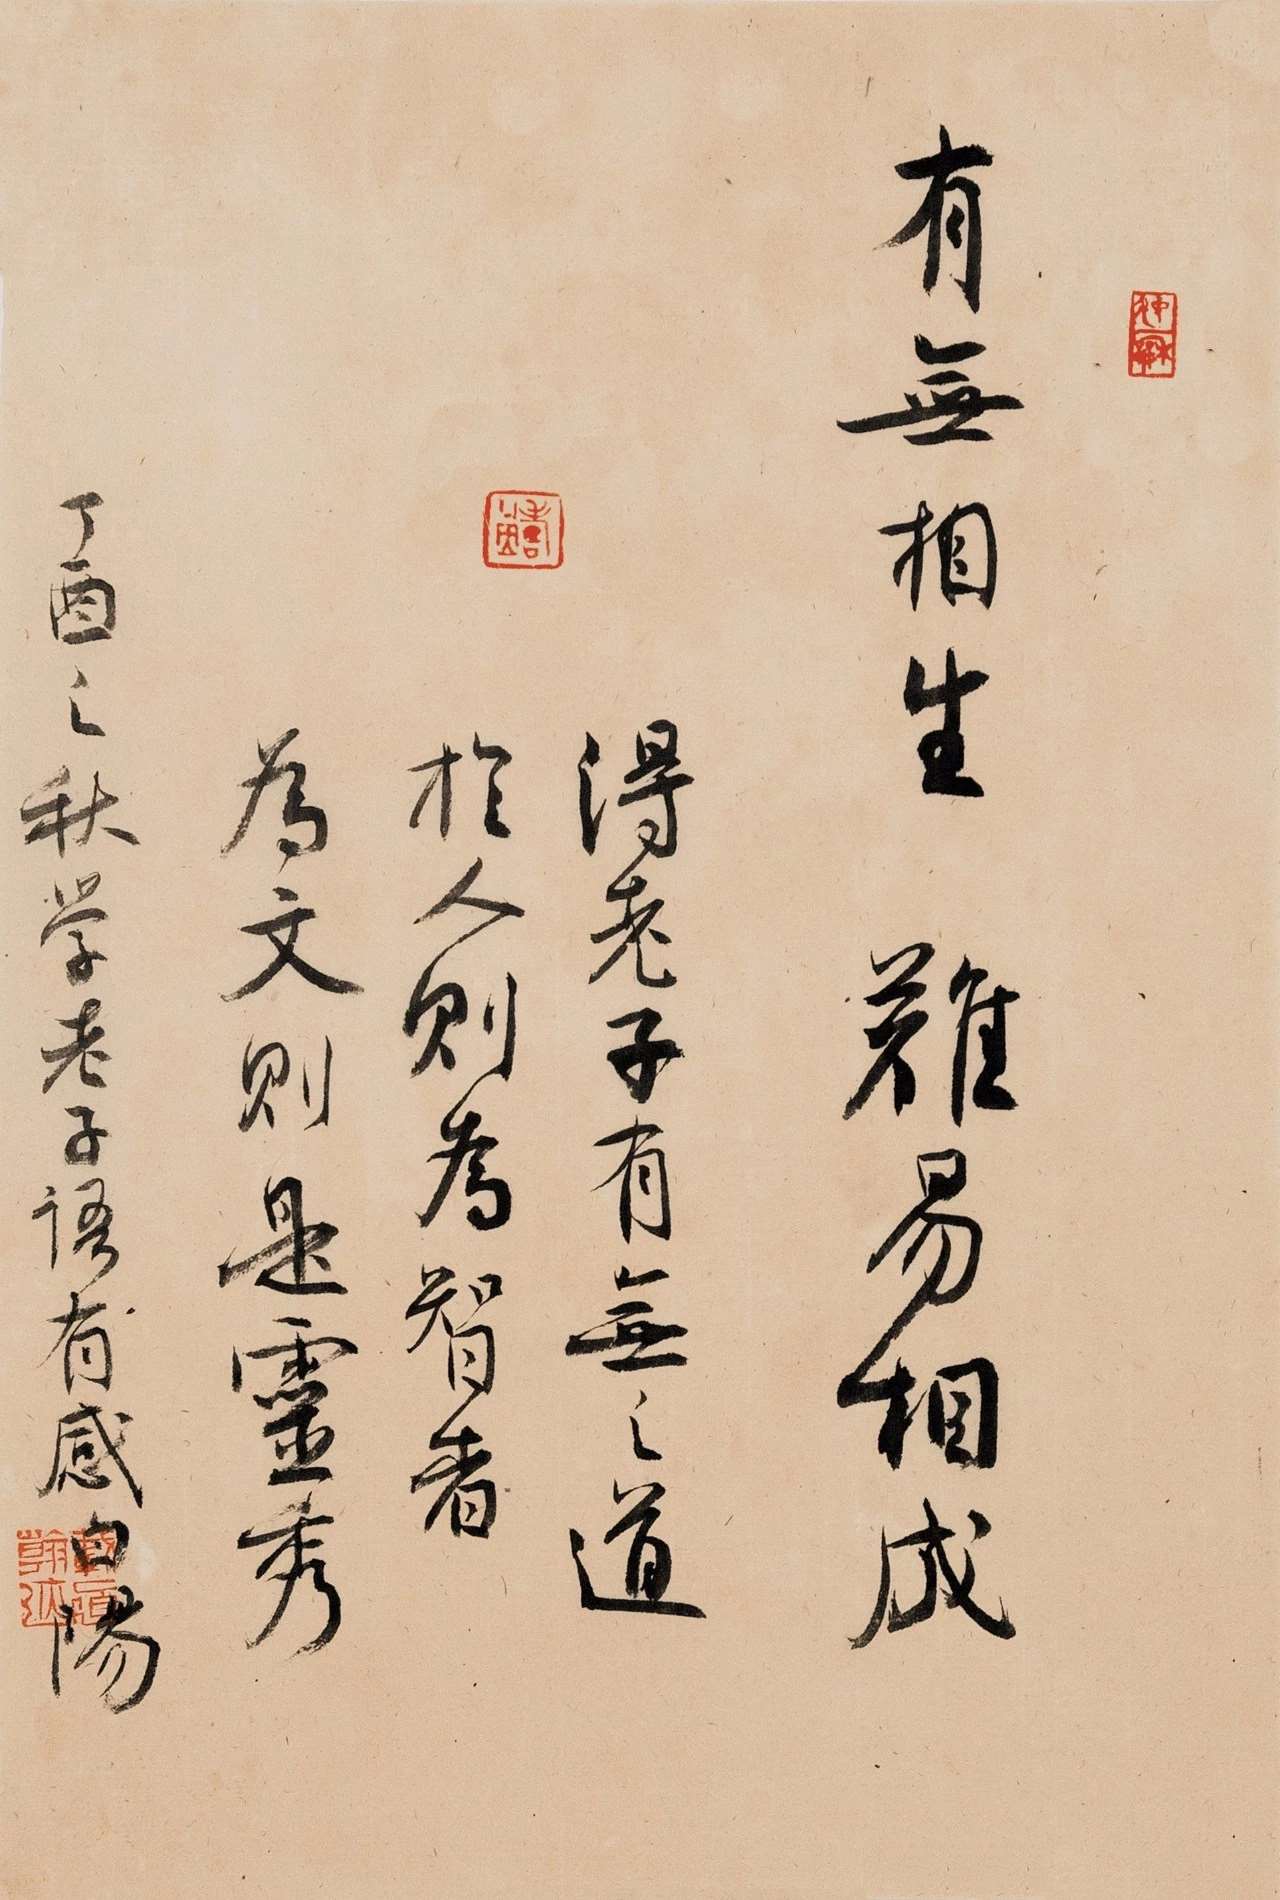 有無相生 難易相成
得老子有無之道
於人則為智者
為文則是靈秀
丁酉之秋学老子語有感白陽